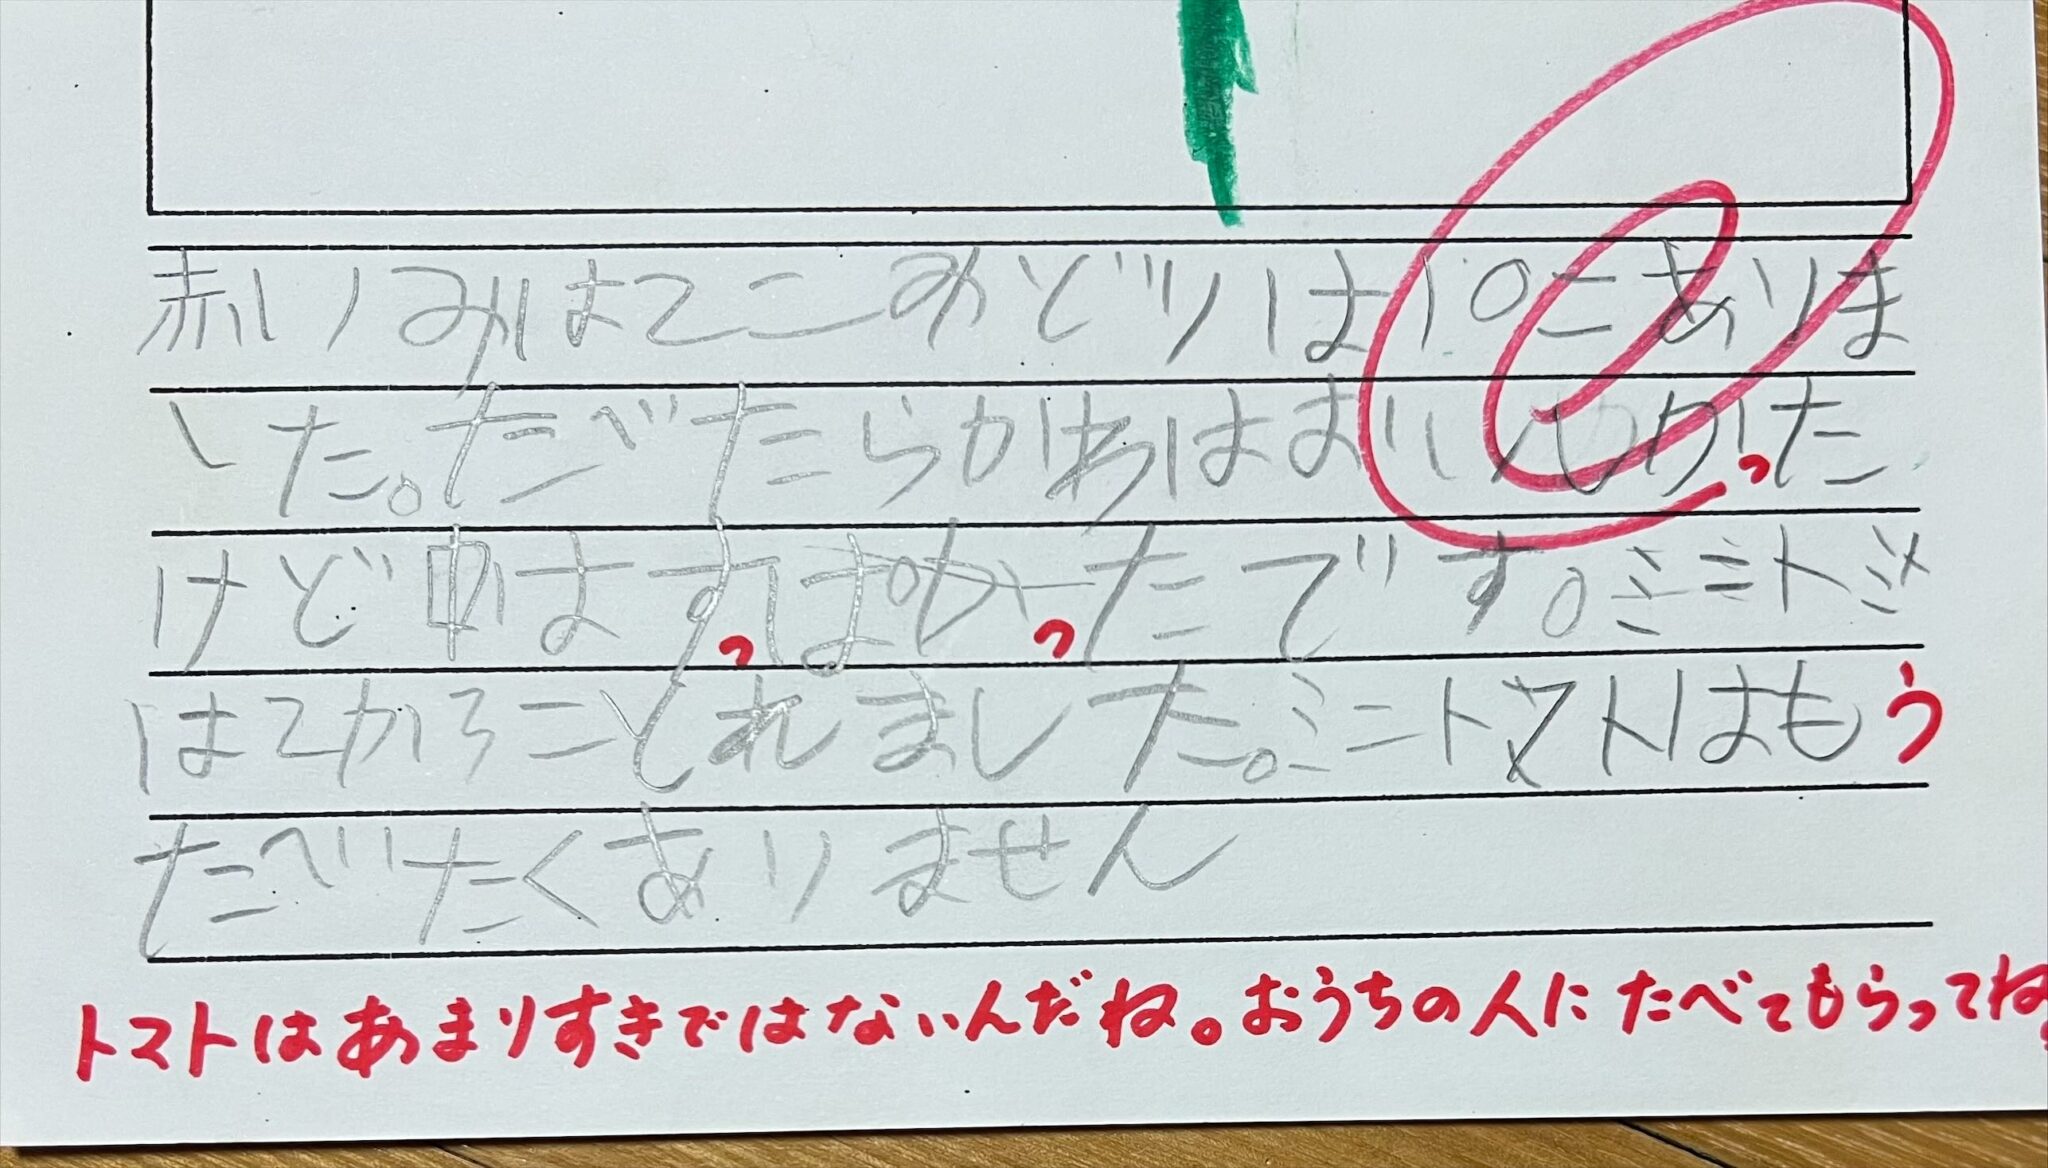 赤いみは2こみどりは10こありま
した。たべたらかわはおいしかった
けど中はすっぱかったです。ミニトマ
は2かろことれました。ミニトマトはもう
たべたくありません
トマトはあまりすきではないんだね。おうちの人にたべてもらってね。